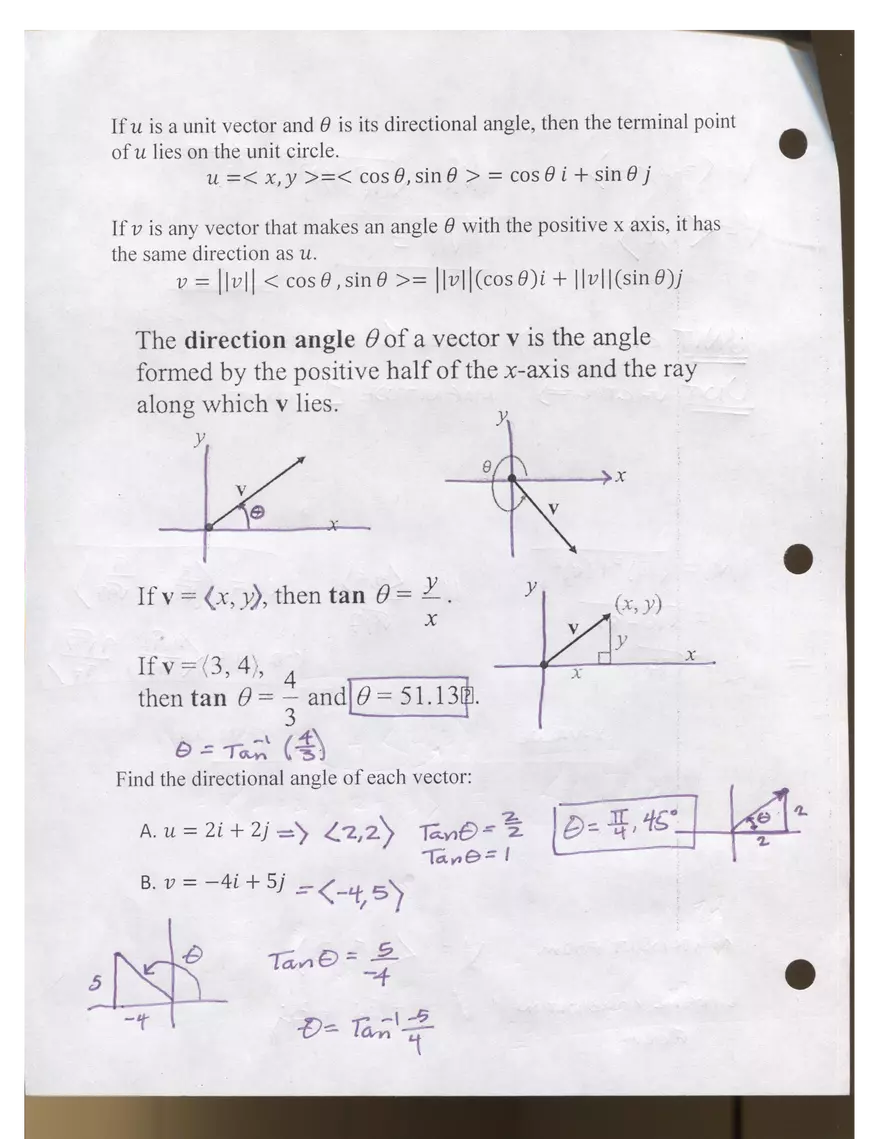 If u is a unit vector and θ is its directional angle, then the terminal point
of u lies on the unit circle.
u =< x, y >=< cos θ, sin θ > = cos θ i + sin θ j
If v is any vector that makes an angle θ with the positive x axis, it has
the same direction as u.
v = ||v|| < cos θ , sin θ >= ||v||(cos θ)i + ||v||(sin θ)j
The direction angle θ of a vector v is the angle
formed by the positive half of the x-axis and the ray
along which v lies.
y
v
θ
x
y
θ
x
v
If v = ⟨x, y⟩, then tan θ = y/x.
y
(x, y)
v
y
x
x
If v = ⟨3, 4⟩,
then tan θ = 4/3 and θ = 51.13⍰.
θ = Tan⁻¹ (4/3)
Find the directional angle of each vector:
A. u = 2i + 2j => ⟨2,2⟩ Tanθ = 2/2 θ = π/4, 45° θ 2
Tanθ = 1 2
B. v = −4i + 5j = ⟨-4, 5⟩
θ
5
-4
Tanθ = 5/-4
θ = Tan⁻¹ -5/4